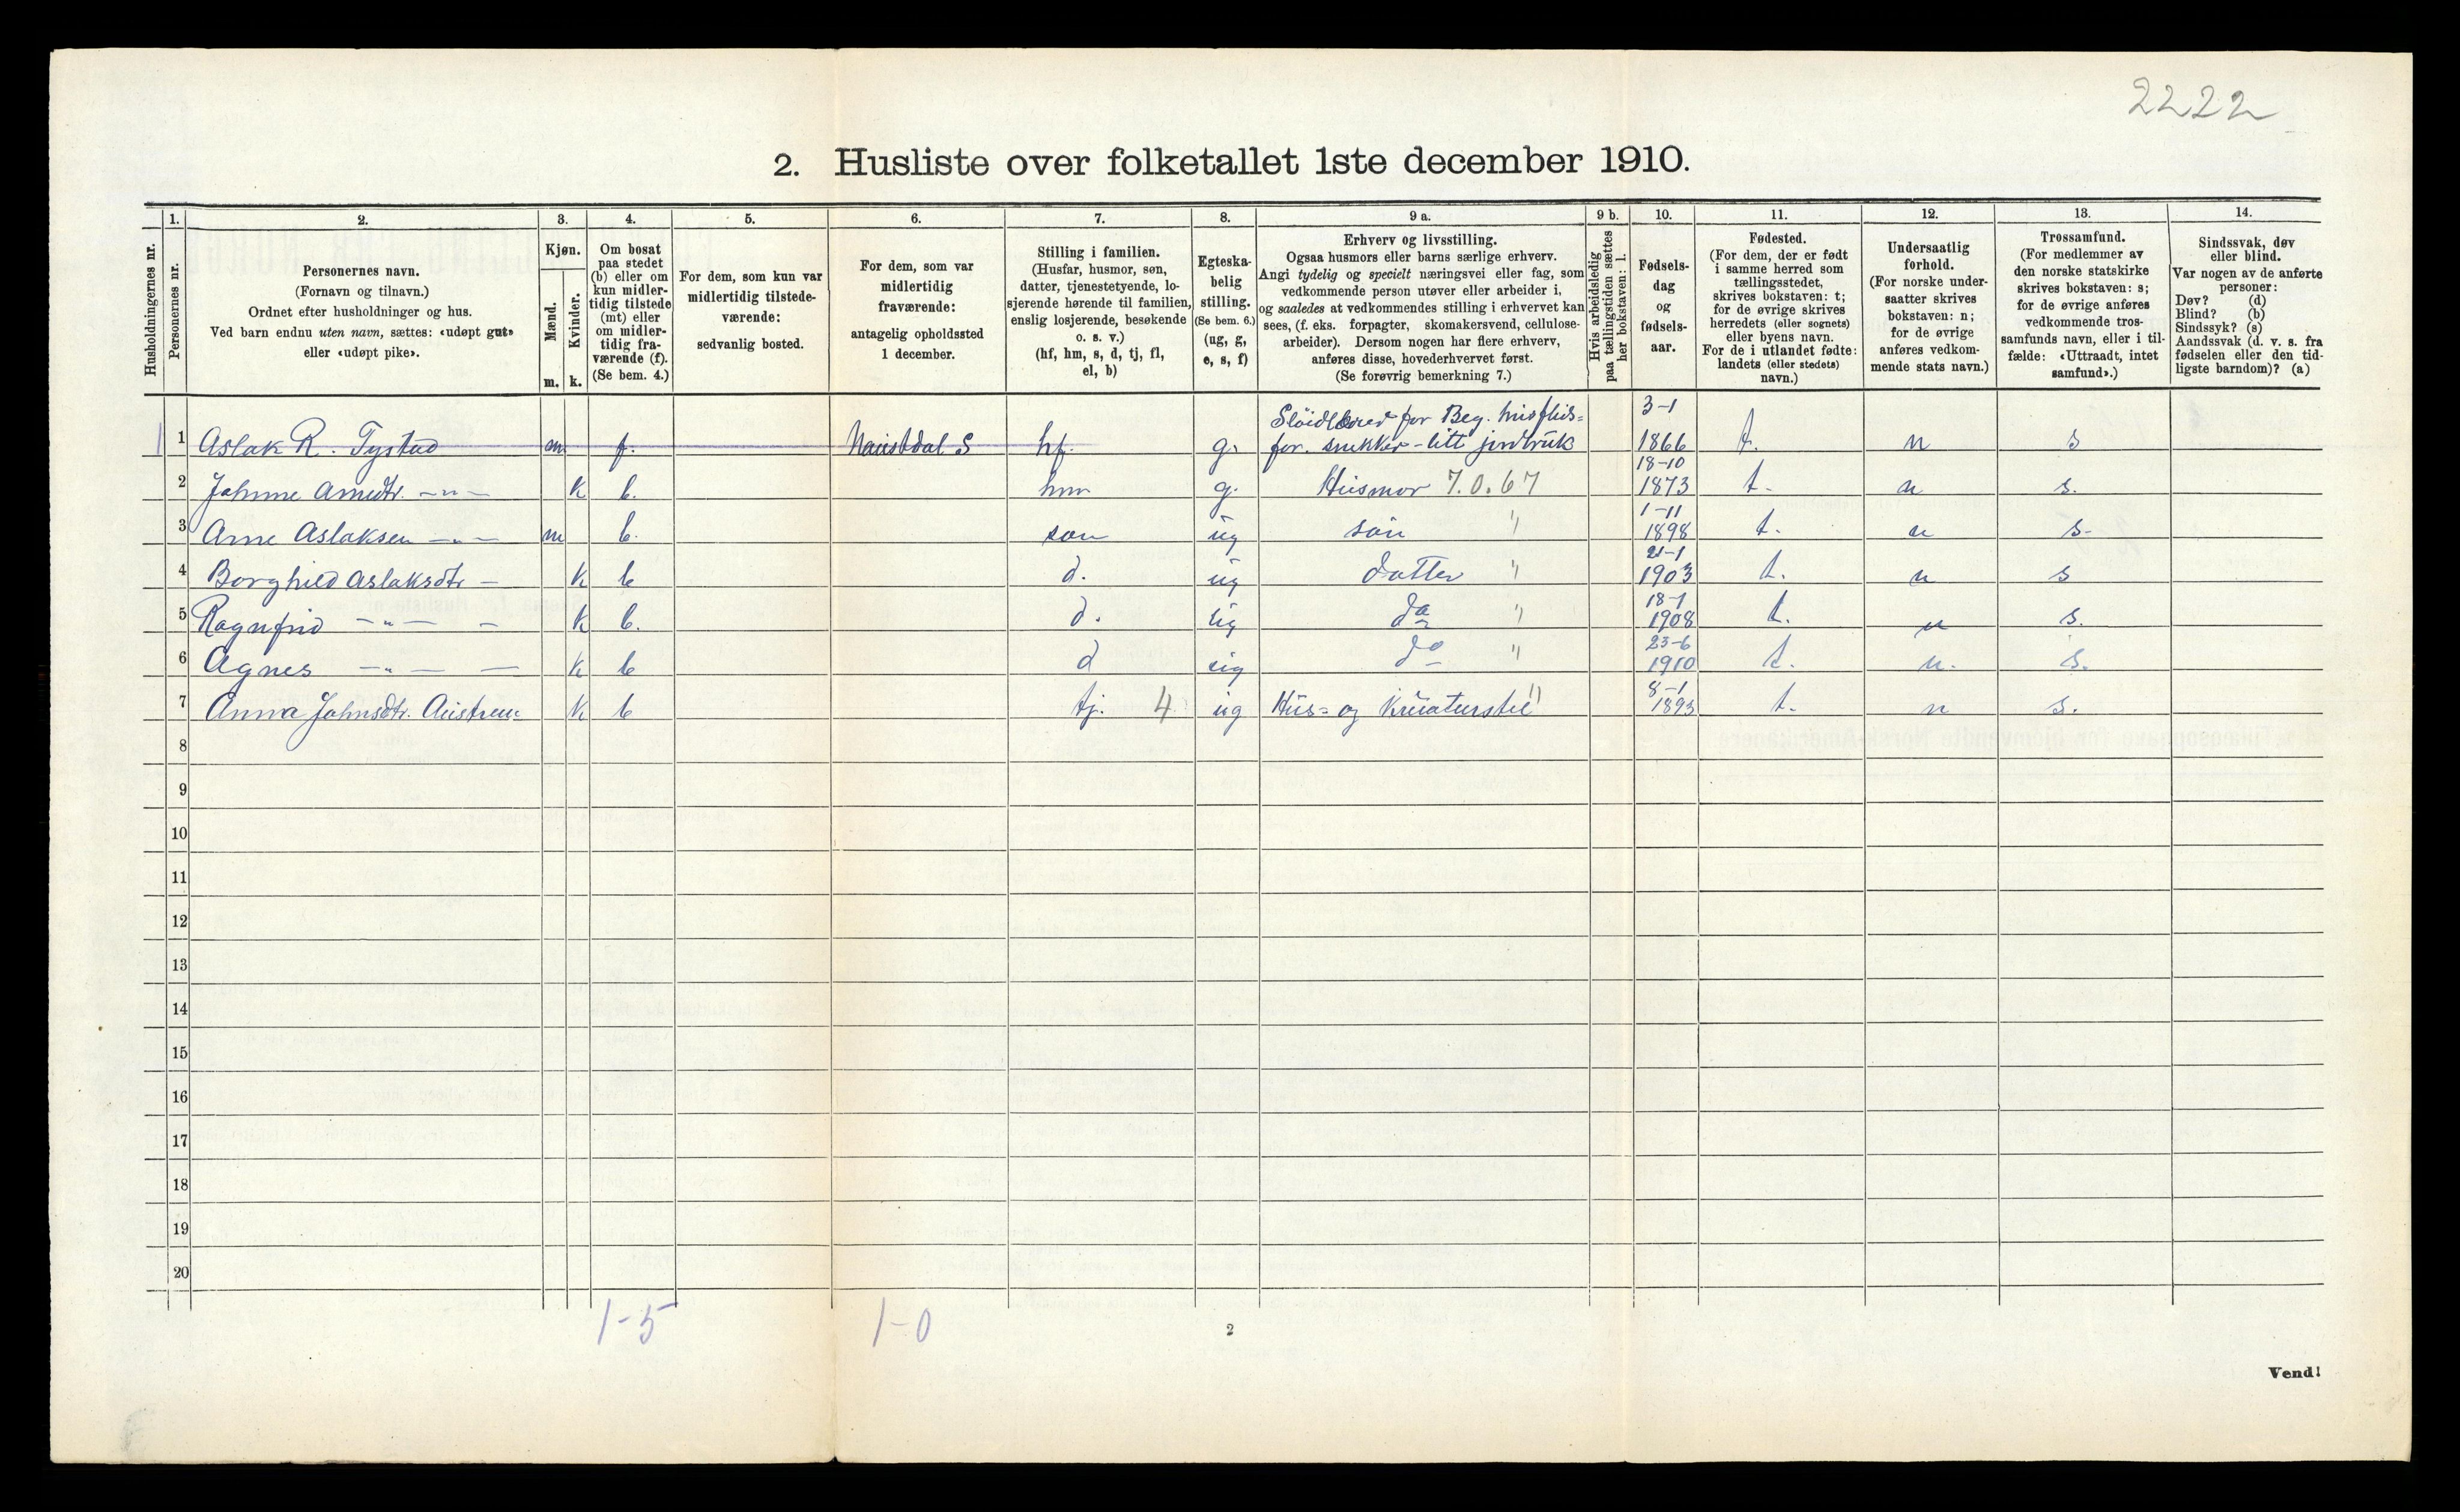 2222
2. Husliste over folketallet 1ste december 1910.
Husholdningernes nr.
1.
Personernes nr.
2.
Personernes navn.
(Fornavn og tilnavn.)
Ordnet efter husholdninger og hus.
Ved barn endnu uten navn, sættes: «udøpt gut»
eller «udøpt pike».
3.
Kjøn.
Mænd.
Kvinder.
m. k.
4.
Om bosat
paa stedet
(b) eller om
kun midler-
tidig tilstede
(mt) eller
om midler-
tidig fra-
værende (f).
(Se bem. 4.)
5.
For dem, som kun var
midlertidig tilstede-
værende:
sedvanlig bosted.
6.
For dem, som var
midlertidig
fraværende:
antagelig opholdssted
1 december.
7.
Stilling i familien.
(Husfar, husmor, søn,
datter, tjenestetyende, lo-
sjerende hørende til familien,
enslig losjerende, besøkende
o. s. v.)
(hf, hm, s, d, tj, fl,
el, b)
8.
Egteska-
belig
stilling.
(Se bem. 6.)
(ug, g,
e, s, f)
9 a.
Erhverv og livsstilling.
Ogsaa husmors eller barns særlige erhverv.
Angi tydelig og specielt næringsvei eller fag, som
vedkommende person utøver eller arbeider i,
og saaledes at vedkommendes stilling i erhvervet kan
sees, (f. eks. forpagter, skomakersvend, cellulose-
arbeider). Dersom nogen har flere erhverv,
anføres disse, hovederhvervet først.
(Se forøvrig bemerkning 7.)
9 b.
Hvis arbeidsledig
paa tællingstiden sættes
her bokstaven: l.
10.
Fødsels-
dag
og
fødsels-
aar.
11.
Fødested.
(For dem, der er født
i samme herred som
tællingsstedet,
skrives bokstaven: t;
for de øvrige skrives
herredets (eller sognets)
eller byens navn.
For de i utlandet fødte:
landets (eller stedets)
navn.)
12.
Undersaatlig
forhold.
(For norske under-
saatter skrives
bokstaven: n;
for de øvrige
anføres vedkom-
mende stats navn.)
13.
Trossamfund.
(For medlemmer av
den norske statskirke
skrives bokstaven: s;
for de øvrige anføres
vedkommende tros-
samfunds navn, eller i til-
fælde: «Uttraadt, intet
samfund».)
14.
Sindssvak, døv
eller blind.
Var nogen av de anførte
personer:
Døv? (d)
Blind? (b)
Sindssyk? (s)
Aandssvak (d. v. s. fra
fødselen eller den tid-
ligste barndom)? (a)
Sløidlærer for Beg. husflids= 3-1
1 1 Aslak R. Tystad m f. Naustdal S hf. g. for. snekker - litt jordbruk 1866 t. n s
18-10
2 Johnne Arnedtr. -"- k b. hm g. Husmor 7.0.67 1873 t. n s.
1-11
3 Arne Aslaksen -"- m b. søn ug søn " 1898 t. n s.
21-1
4 Borghild Aslaksdtr - k b d. ug datter " 1903 t. n s
18-1
5 Ragnfrid -"- - k b. d. ug do " 1908 t. n s.
23-6
6 Agnes -"- - k b d ug do " 1910 t. n. s.
8-1
7 Anna Johnsdtr. k b tj. 4 ug Hus= og Kreaturstel " 1893 t. n s.
8
9
10
11
12
13
14
15
16
17
18
19
20
1-5 1-0
2
Vend!